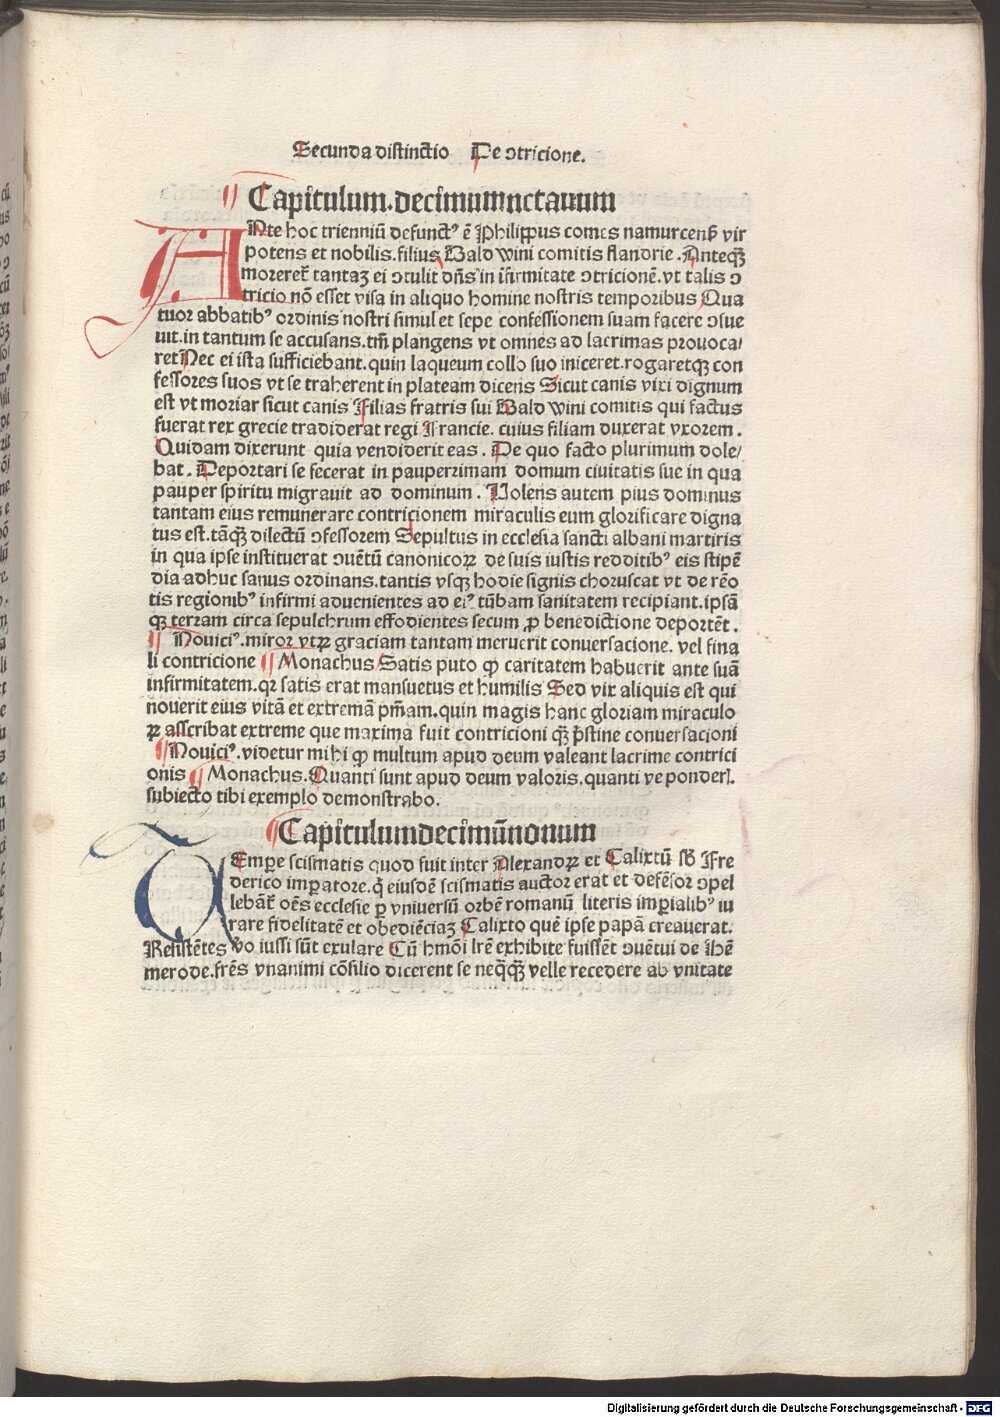 Secunda distinctio De ↄtricione.
Capitulum.decimumnctauum
ANte hoc trienniū defunctꝰ ē Philippus comes namurcenẜ vir
potens et nobilis.filius Baldwini comitis flandrie.Anteqꝫ
morereť tantaꝫ ei ↄtulit dn̄s in īfirmitate ↄtricionē.vt talis ↄ
tricio nō esset visa in aliquo homine nostris temporibus Qua
tuor abbatibꝰ ordinis nostri simul et sepe confessionem suam facere ↄsue
uit.in tantum se accusans.tm̄ plangens vt omnes ad lacrimas prouoca/
ret Nec ei ista sufficiebant.quin laqueum collo suo iniceret.rogaretqꝫ con
fessores suos vt se traherent in plateam dicens Sicut canis vixi dignum
est vt moriar sicut canis Filias fratris sui Baldwini comitis qui factus
fuerat rex grecie tradiderat regi Francie. cuius filiam duxerat vxorem.
Quidam dixerunt quia vendiderit eas. De quo facto plurimum dole/
bat. Deportari se fecerat in pauperrimam domum ciuitatis sue in qua
pauper spiritu migrauit ad dominum. Uolens autem pius dominus
tantam eius remunerare contricionem miraculis eum glorificare digna
tus est.tāqꝫ dilectū ↄfessorem Sepultus in ecclesia sancti albani martiris
in qua ipse instituerat ↄuētū canonicoꝝ de suis iustis redditibꝰ eis stipē
dia adhuc sanus ordinans.tantis vsqꝫ hodie signis choruscat vt de reō
tis regionibꝰ infirmi aduenientes ad eiꝰ tūbam sanitatem recipiant.ipsā
qꝫ terram circa sepulchrum effodientes secum ꝓ benedictione deportēt.
¶ Nouiciꝰ.miror vtꝝ graciam tantam meruerit conuersacione. vel fina
li contricione ¶ Monachus Satis puto ꝙ caritatem habuerit ante suā
infirmitatem.qꝛ satis erat mansuetus et humilis Sed vix aliquis est qui
nouerit eius vitā et extremā pn̄iam.quin magis hanc gloriam miraculo
ꝝ asscribat extreme que maxima fuit contricioni qꝫ pristine conuersacioni
¶ Nouiciꝰ.videtur mihi ꝙ multum apud deum valeant lacrime contrici
onis ¶ Monachus. Quanti sunt apud deum valoris.quanti ve ponderꝭ.
subiecto tibi exemplo demonstrabo.
¶ Capitulumdecimūnonum
TEmpore scismatis quod fuit inter Alexandꝝ et Calixtū sb̄ Fre
derico imꝑatore.q̄ eiusdē scismatis auctor erat et defēsor ↄpel
lebāť oēs ecclesie ꝑ vniuersū orbē romanū literis imꝑialibꝰ iu
rare fidelitatē et obediēciaꝫ Calixto quē ipse papā creauerat.
Resistētes vo iussi sūt exulare Cū hmōi lr̄e exhibite fuissēt ↄuētui de Hē
merode.fr̄es vnanimi cōsilio dicerent se neqꝫqꝫ velle recedere ab vnitate
Digitalisierung gefördert durch die Deutsche Forschungsgemeinschaft - DFG